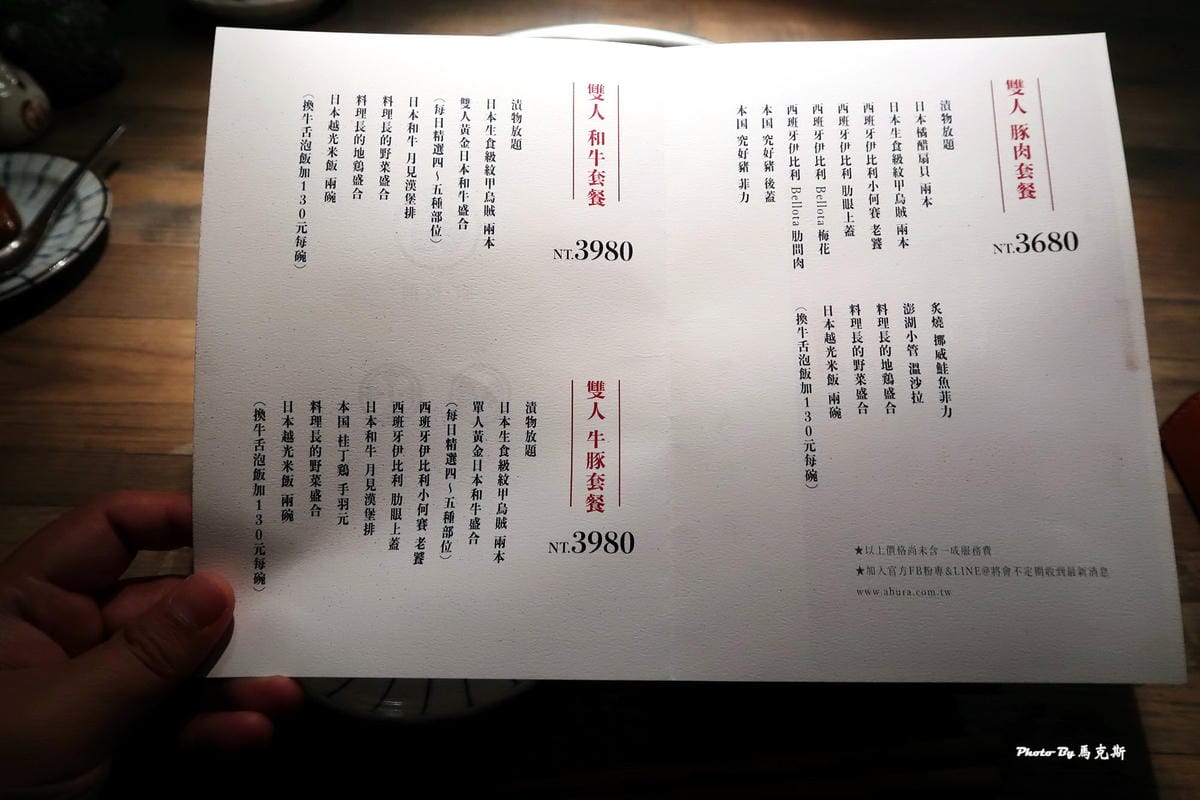 雙人 豚肉套餐
NT.3680
漬物放題
日本橘醋扇貝 兩本
日本生食級紋甲烏賊 兩本
西班牙伊比利小何賽 老饕
西班牙伊比利 肋眼上蓋
西班牙伊比利 Bellota 梅花
西班牙伊比利 Bellota 肋間肉
本国 究好豬 後蓋
本国 究好豬 菲力
炙燒 挪威鮭魚菲力
澎湖小管 溫沙拉
料理長的地鶏盛合
料理長的野菜盛合
日本越光米飯 兩碗
(換牛舌泡飯加130元每碗)
★以上價格尚未含一成服務費
★加入官方FB粉專&LINE@將會不定期收到最新消息
www.abura.com.tw
雙人 和牛套餐
NT.3980
漬物放題
日本生食級紋甲烏賊 兩本
雙人黃金日本和牛盛合
(每日精選四～五種部位)
日本和牛 月見漢堡排
料理長的野菜盛合
料理長的地鶏盛合
日本越光米飯 兩碗
(換牛舌泡飯加130元每碗)
雙人 牛豚套餐
NT.3980
漬物放題
日本生食級紋甲烏賊 兩本
單人黃金日本和牛盛合
(每日精選四～五種部位)
西班牙伊比利小何賽 老饕
西班牙伊比利 肋眼上蓋
日本和牛 月見漢堡排
本国 桂丁鶏 手羽元
料理長的野菜盛合
日本越光米飯 兩碗
(換牛舌泡飯加130元每碗)
Photo By 馬克斯